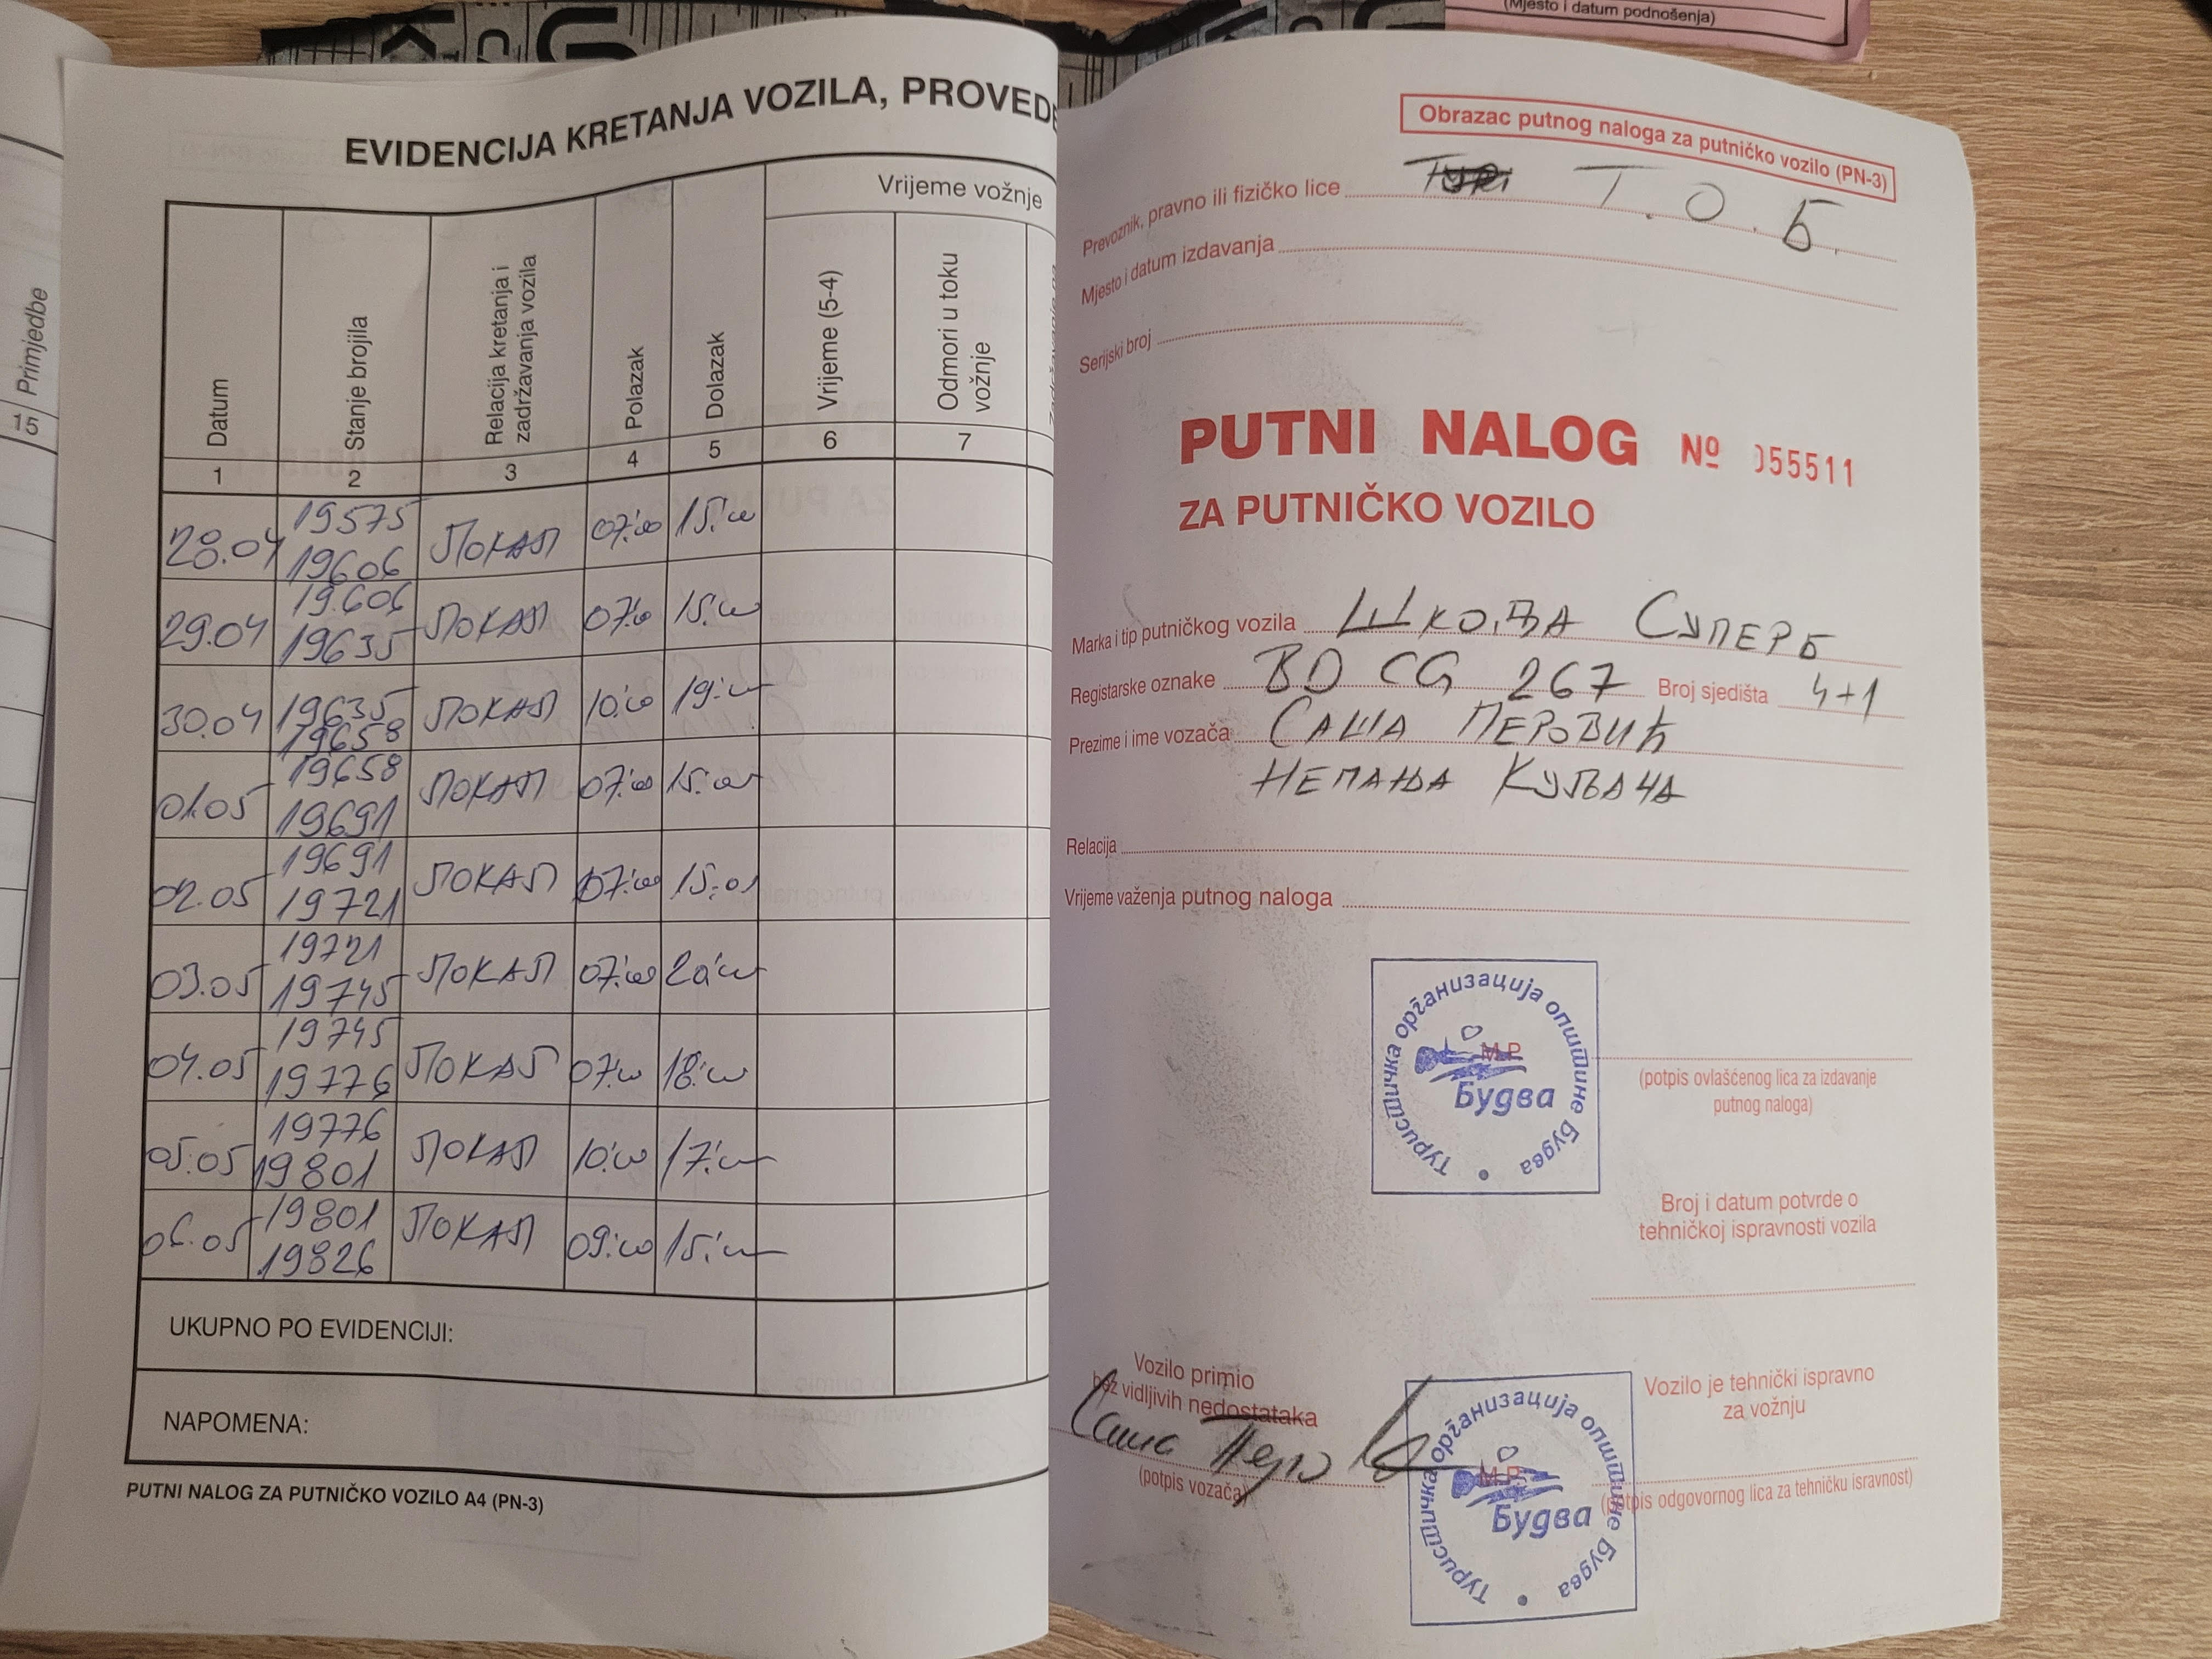 (Mjesto i datum podnošenja)
Primjedbe
15
EVIDENCIJA KRETANJA VOZILA, PROVEDE
Vrijeme vožnje
Datum
Stanje brojila
Relacija kretanja i
zadržavanja vozila
Polazak
Dolazak
Vrijeme (5-4)
Odmori u toku
vožnje
1 2 3 4 5 6 7
19575
28.04 ЛОКАЛ 07:00 15:00
19606
19.606
29.04 ЛОКАЛ 07:00 15:00
19635
30.04 19635 ЛОКАЛ 10:00 19:00
19658
19658
01.05 ЛОКАЛ 07:00 15:00
19691
19691
02.05 ЛОКАЛ 07:00 15:01
19721
19721
03.05 ЛОКАЛ 07:00 20:00
19745
19745
04.05 ЛОКАЛ 07:00 18:00
19776
19776
05.05 ЛОКАЛ 10:00 17:00
19801
19801
06.05 ЛОКАЛ 09:00 15:00
19826
UKUPNO PO EVIDENCIJI:
NAPOMENA:
PUTNI NALOG ZA PUTNIČKO VOZILO A4 (PN-3)
Obrazac putnog naloga za putničko vozilo (PN-3)
Prevoznik, pravno ili fizičko lice Т.О.Б.
Mjesto i datum izdavanja
Serijski broj
PUTNI NALOG № 055511
ZA PUTNIČKO VOZILO
Marka i tip putničkog vozila ШКОДА СУПЕРБ
Registarske oznake BD CG 267 Broj sjedišta 4+1
Prezime i ime vozača САША ПЕРОВИЋ
НЕМАЊА КУЉАЧА
Relacija
Vrijeme važenja putnog naloga
Туристичка организација општине Будва
M.P.
Будва
(potpis ovlašćenog lica za izdavanje
putnog naloga)
Broj i datum potvrde o
tehničkoj ispravnosti vozila
Vozilo primio
bez vidljivih nedostataka
Саша Перо
(potpis vozača)
Vozilo je tehnički ispravno
za vožnju
Туристичка организација општине Будва
M.P.
Будва
(potpis odgovornog lica za tehničku isravnost)